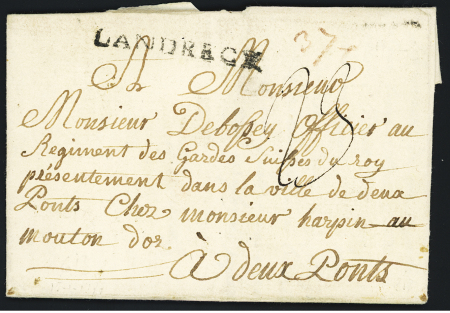 LANDRECY
37
A Monsieur
Monsieur Debossey officier au
Regiment des Gardes Suisses du roy
présentement dans la ville de deux
Ponts Chez monsieur harpin au
mouton dor
à deux Ponts